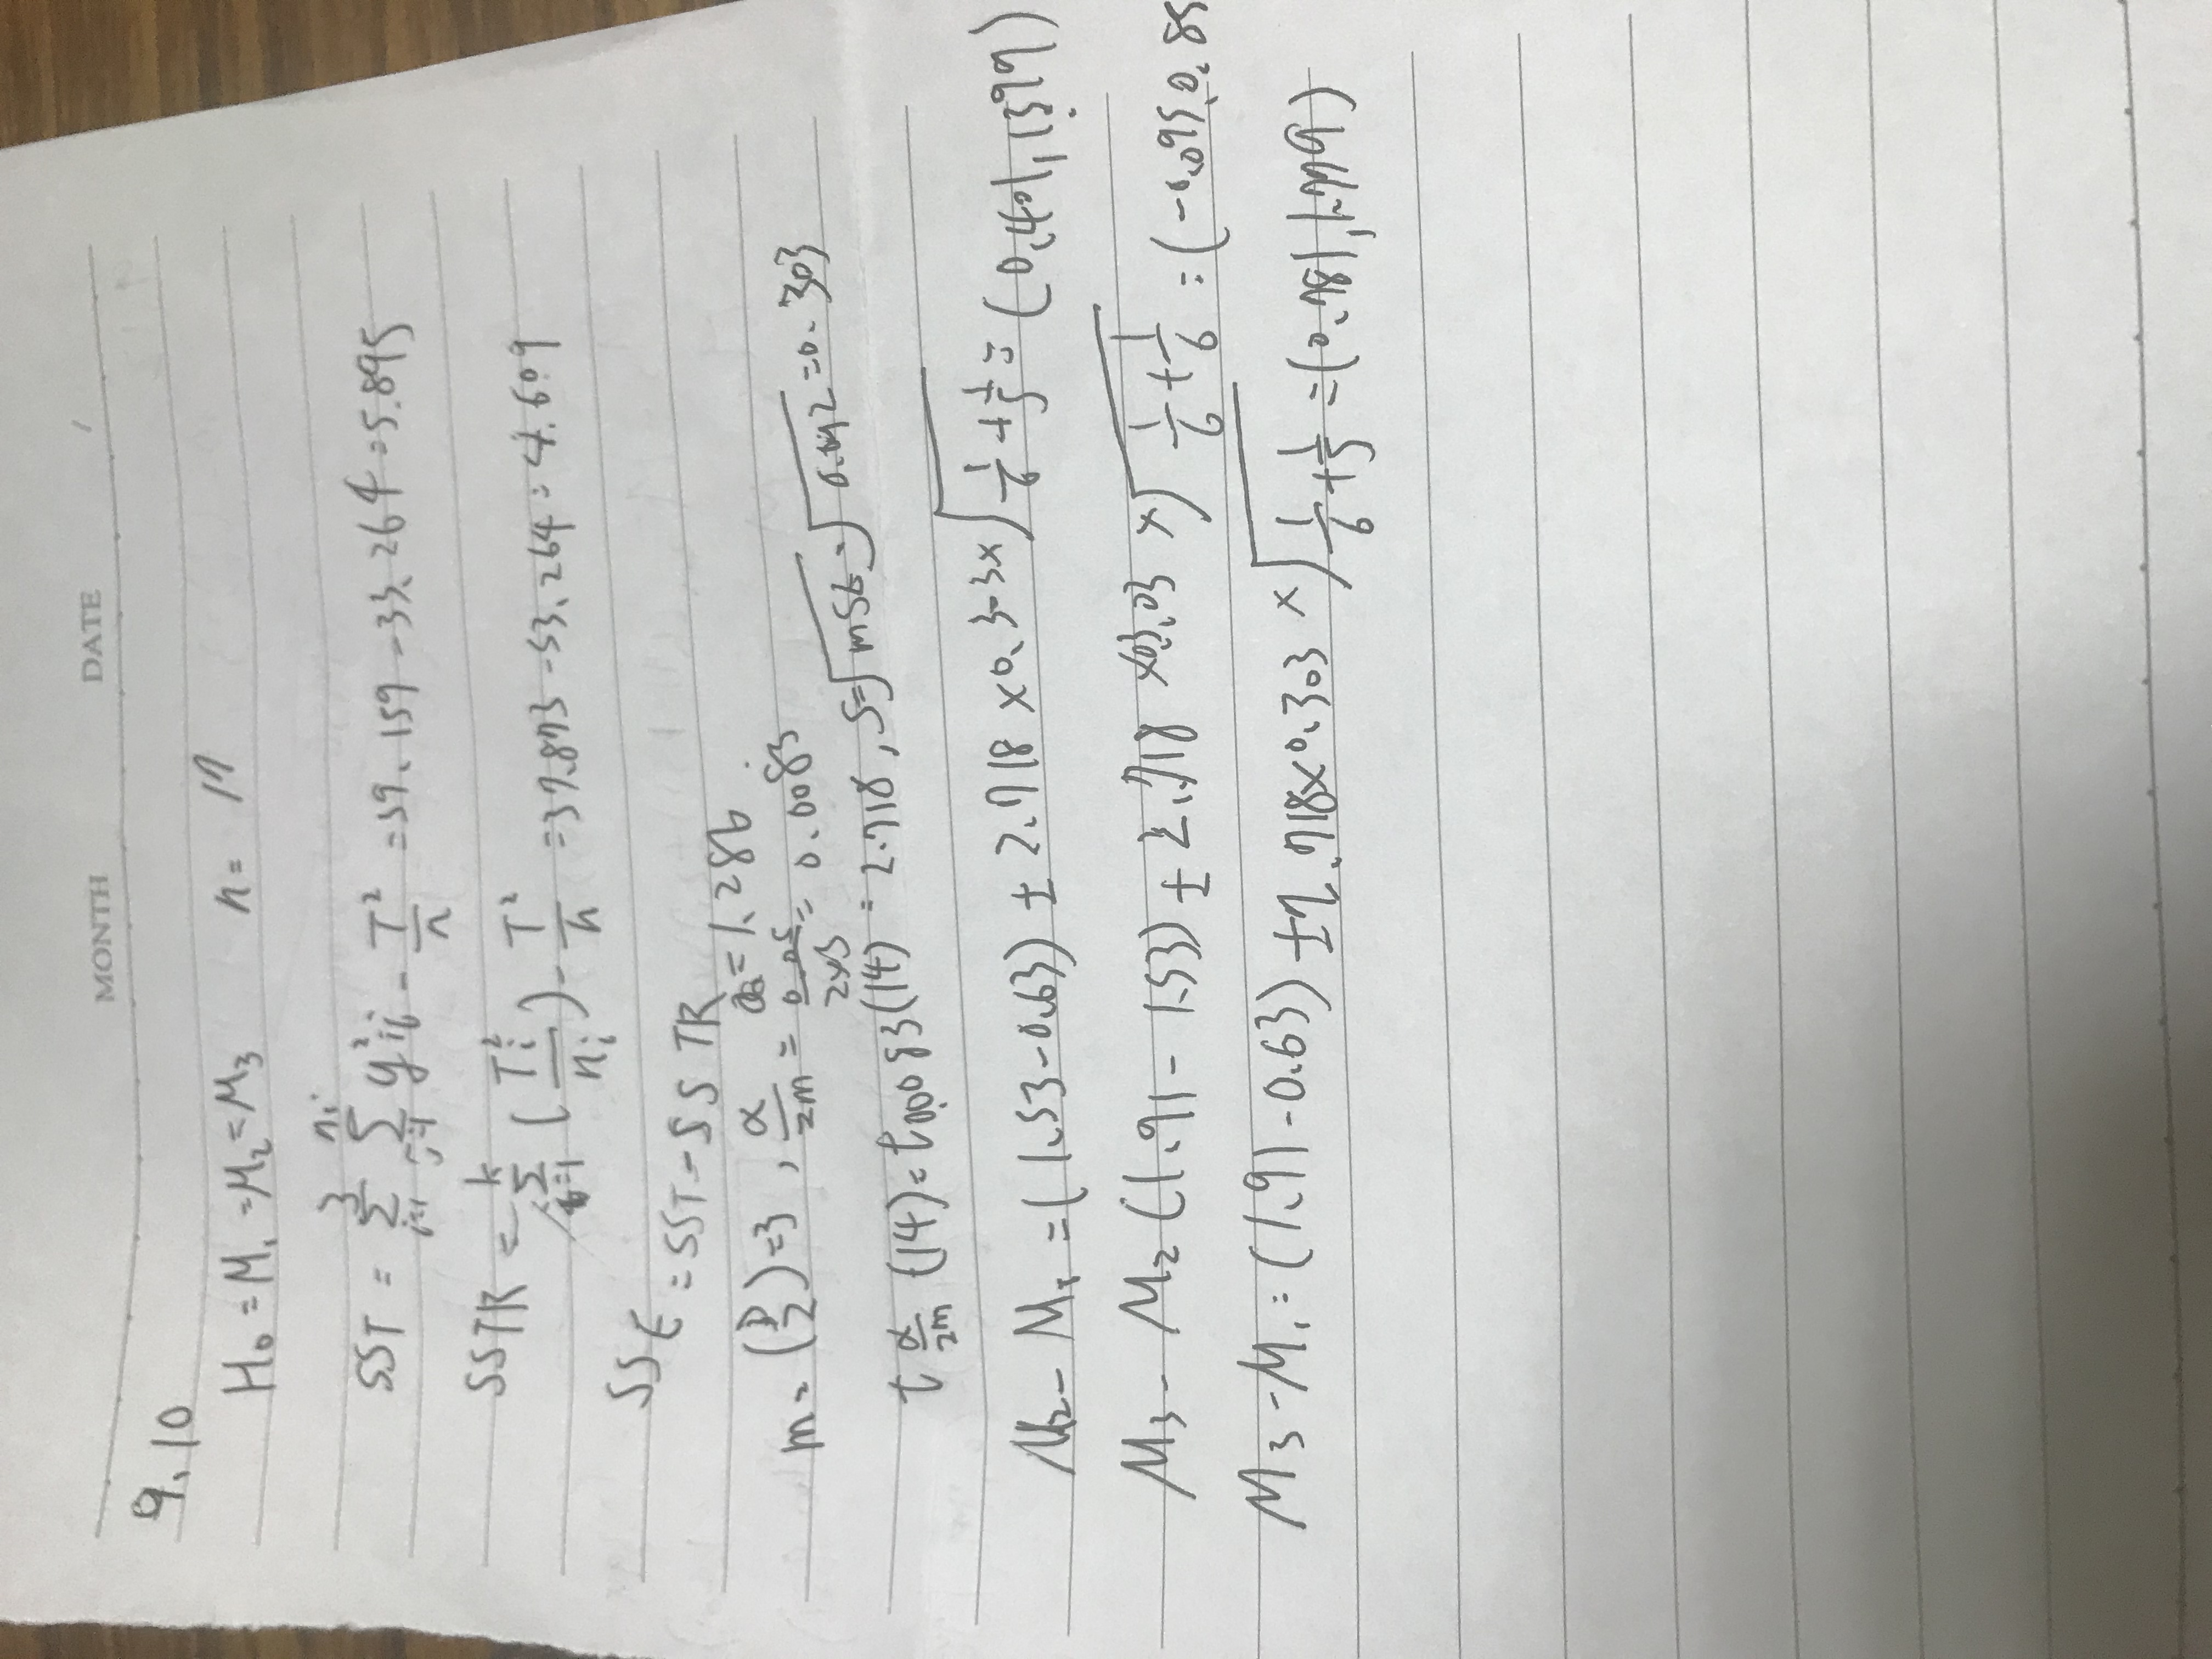 MONTH DATE
9.10
H₀ = M₁ = M₂ = M₃ n = 17
SST = ∑ᵢ₌₁³ ∑ⱼ₌₁ⁿⁱ y²ij - T²/n = 39.159 - 33.264 = 5.895
SSTR = ∑ᵢ₌₁ᵏ (Tᵢ²/nᵢ) - T²/n = 37.873 - 33.264 = 4.609
SSE = SST - SSTR
= 1.286
m = (3/2) = 3, α/2m = 0.05/2×3 = 0.0083
t α/2m (14) = t0.0083(14) = 2.718, S = √MSE = √0.092 = 0.303
M₂ - M₁ = (1.53 - 0.63) ± 2.718 × 0.303 × √1/6 + 1/5 = (0.401, 1.399)
M₃ - M₂ (1.91 - 1.53) ± 2.718 × 0.303 × √1/6 + 1/6 = (-0.095, 0.85
M₃ - M₁ = (1.91 - 0.63) ± 2.718 × 0.303 × √1/6 + 1/5 = (0.781, 1.779)